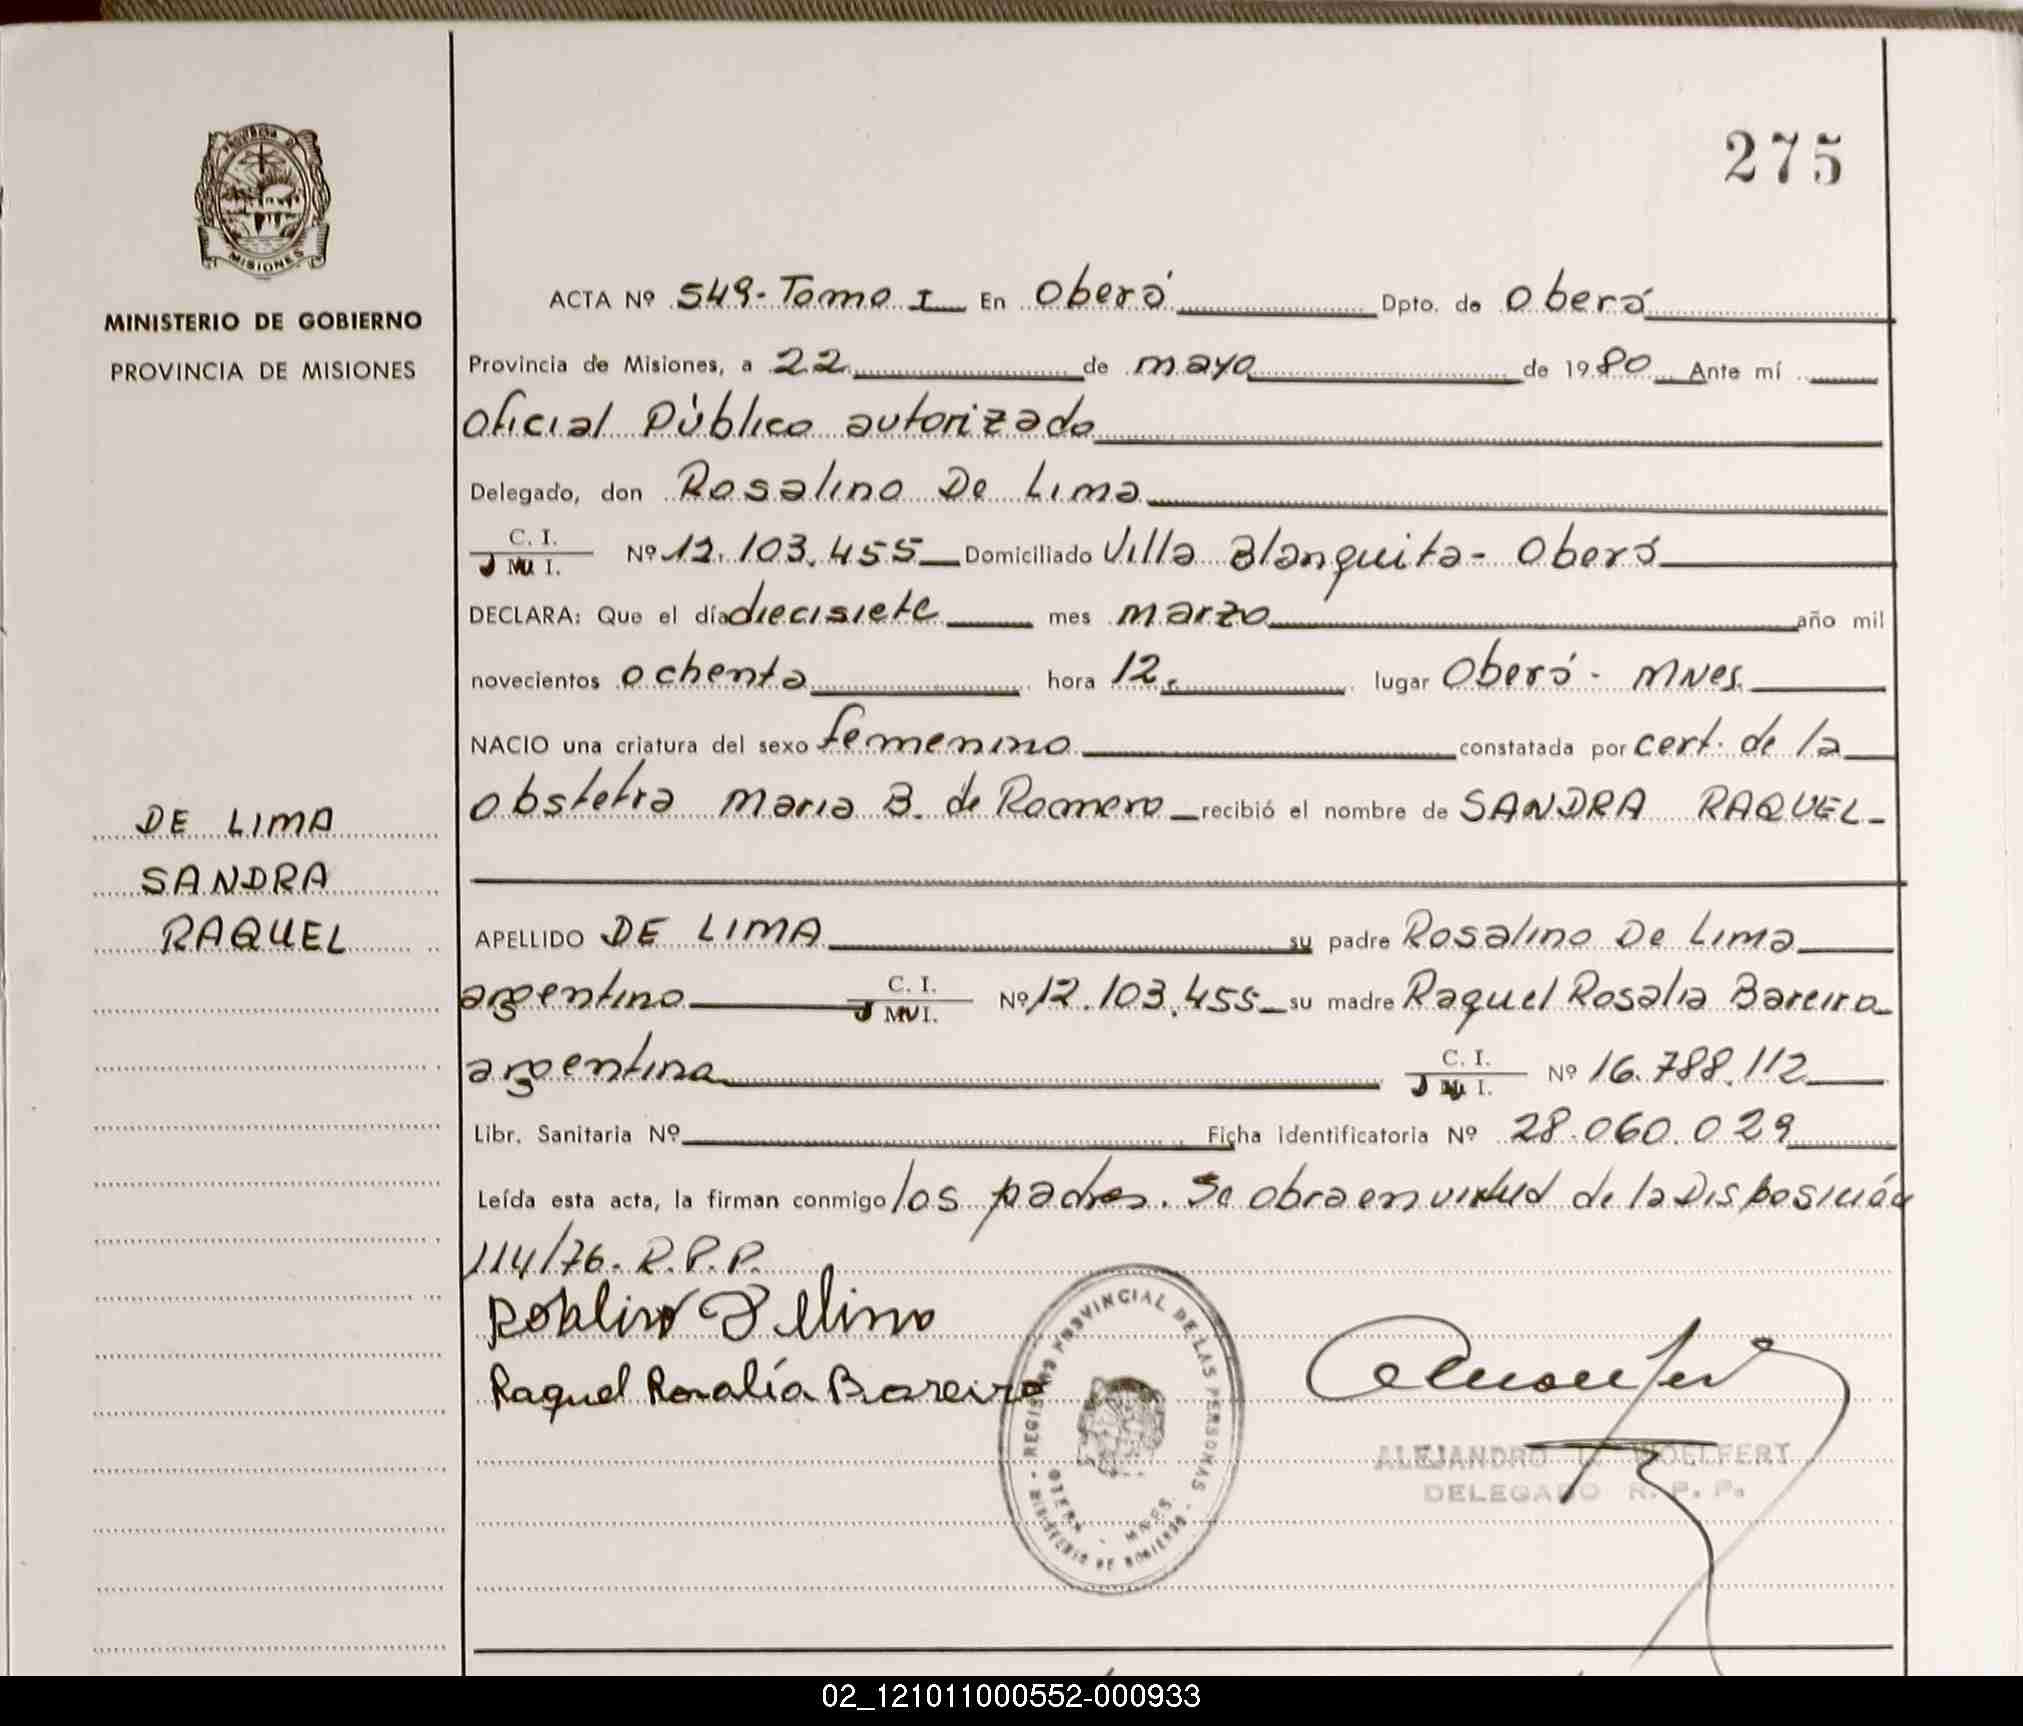 275
PROVINCIA DE
MISIONES
MINISTERIO DE GOBIERNO
PROVINCIA DE MISIONES
ACTA Nº 549-Tomo I En Oberá Dpto. de Oberá
Provincia de Misiones, a 22 de mayo de 1980 Ante mí
Oficial Público autorizado
Delegado, don Rosalino De Lima
C. I.
Nº 12.103.455 Domiciliado Villa Blanquita- Oberá
DECLARA: Que el día diecisiete mes marzo año mil
novecientos ochenta hora 12. lugar Oberá - Mnes.
NACIO una criatura del sexo femenino constatada por cert. de la
obstetra Maria B. de Romero recibió el nombre de SANDRA RAQUEL-
DE LIMA
SANDRA
RAQUEL
APELLIDO DE LIMA su padre Rosalino De Lima
argentino C. I. Nº 12.103.455 su madre Raquel Rosalia Bareiro
argentina C. I. Nº 16.788.112
Libr. Sanitaria Nº Ficha identificatoria Nº 28.060.029
Leída esta acta, la firman conmigo los padres. Se obra en virtud de la Disposición
114/76. R.P.P.
Raquel Rosalía Bareiro
REGISTRO PROVINCIAL DE LAS PERSONAS
MINISTERIO DE GOBIERNO
OBERA - MNES.
ALEJANDRO WOELFERT
DELEGADO R. P. P.
02_121011000552-000933